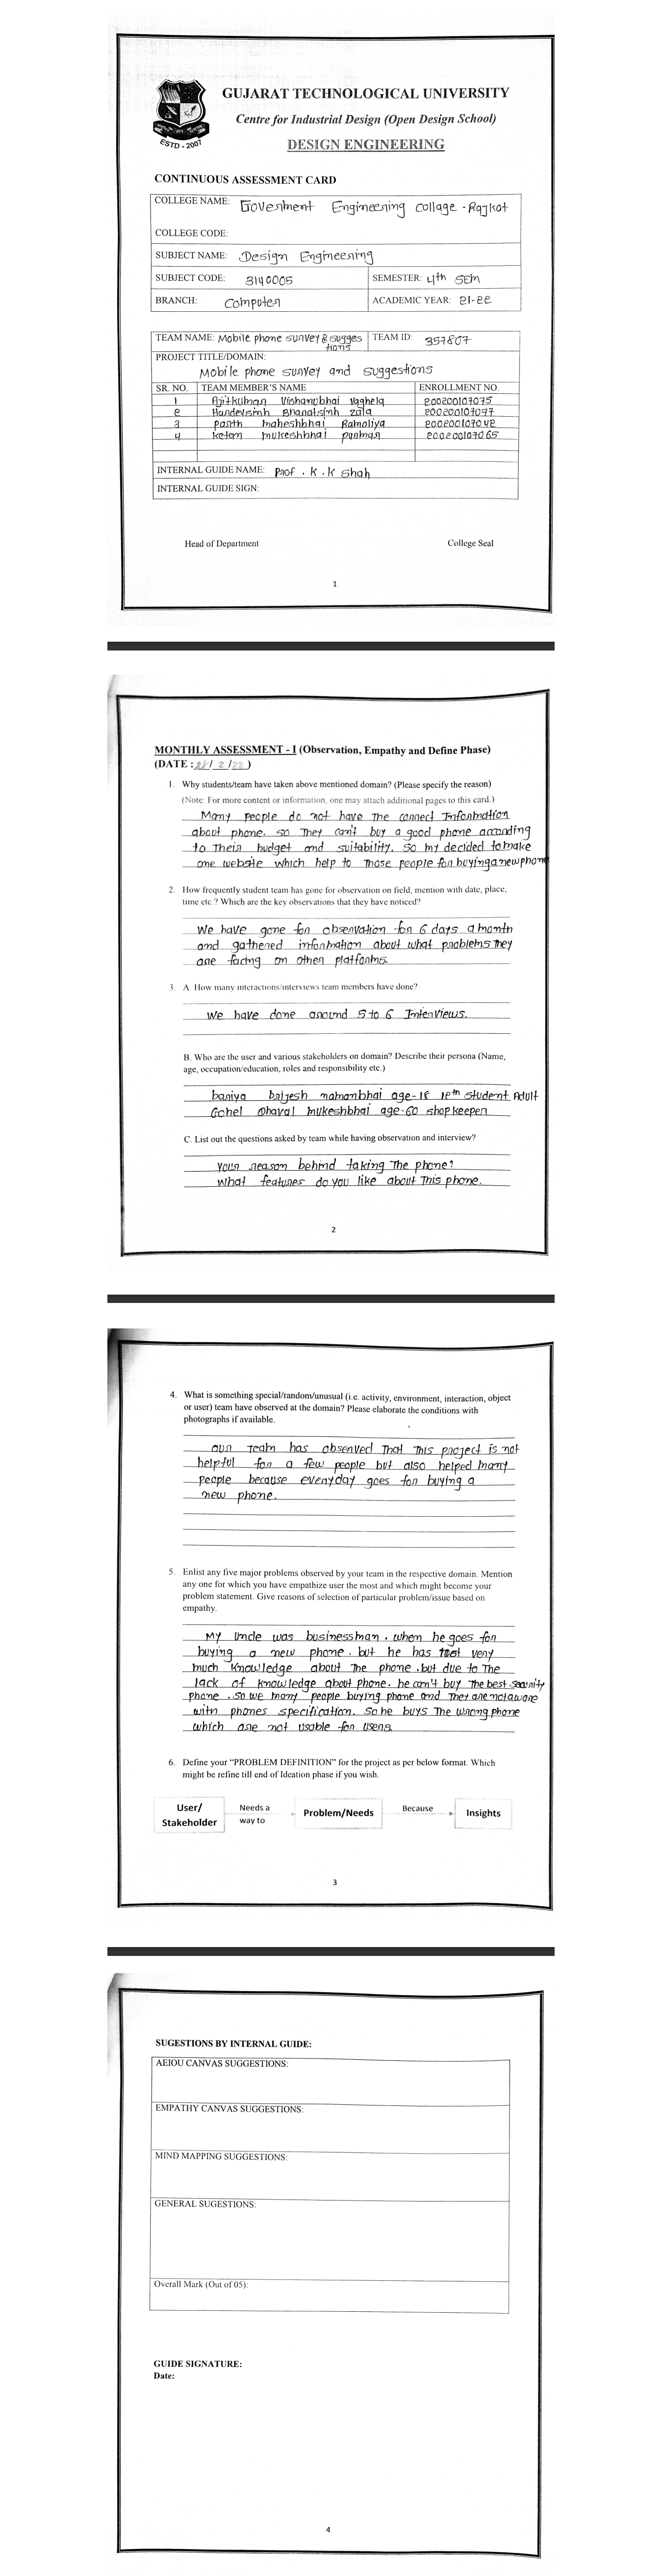 GUJARAT TECHNOLOGICAL UNIVERSITY
Centre for Industrial Design (Open Design School)
DESIGN ENGINEERING
ESTD - 2007
CONTINUOUS ASSESSMENT CARD
COLLEGE NAME: Goverment Engineering collage - Rajkot
COLLEGE CODE:
SUBJECT NAME: Design Engineering
SUBJECT CODE: 3140005 SEMESTER: 4th SEM
BRANCH: Computer ACADEMIC YEAR: 21-22
TEAM NAME: Mobile phone survey & sugges TEAM ID: 357807
tions
PROJECT TITLE/DOMAIN:
Mobile phone survey and suggestions
SR. NO. TEAM MEMBER'S NAME ENROLLMENT NO.
1 Ajitkumar Vishanubhai vaghela 200200107075
2 Hardevsinh Bharatsinh zala 200200107077
3 parth maheshbhai Ramoliya 200200107042
4 ketan mukeshbhai parmar 200200107065
INTERNAL GUIDE NAME: Prof . K . K Shah
INTERNAL GUIDE SIGN:
Head of Department College Seal
1
MONTHLY ASSESSMENT - I (Observation, Empathy and Define Phase)
(DATE : 28/ 2 /22 )
1. Why students/team have taken above mentioned domain? (Please specify the reason)
(Note: For more content or information, one may attach additional pages to this card.)
Many people do not have the correct Information
about phone. so They can't buy a good phone according
to Their budget and suitability. so my decided to make
one website which help to Those people for buying a new phone
2. How frequently student team has gone for observation on field, mention with date, place,
time etc.? Which are the key observations that they have noticed?
We have gone for observation for 6 days a month
and gathered information about what problems They
are facing on other platforms.
3. A. How many interactions/interviews team members have done?
We have done around 5 to 6 Interviews.
B. Who are the user and various stakeholders on domain? Describe their persona (Name,
age, occupation/education, roles and responsibility etc.)
bariya brijesh ramanbhai age-18 10th student Adult
Gohel Dhaval mukeshbhai age-60 shop keeper
C. List out the questions asked by team while having observation and interview?
your reason behind taking The phone?
what features do you like about This phone.
2
4. What is something special/random/unusual (i.e. activity, environment, interaction, object
or user) team have observed at the domain? Please elaborate the conditions with
photographs if available.
our team has observed That This project is not
helpful for a few people but also helped many
people because everyday goes for buying a
new phone.
5. Enlist any five major problems observed by your team in the respective domain. Mention
any one for which you have empathize user the most and which might become your
problem statement. Give reasons of selection of particular problem/issue based on
empathy.
My uncle was businessman . when he goes for
buying a new phone . but he has not very
much knowledge about The phone .but due to The
lack of knowledge about phone. he can't buy The best security
phone . so we many people buying phone and They are not aware
with phones specification. so he buys The wrong phone
which are not usable for users.
6. Define your “PROBLEM DEFINITION” for the project as per below format. Which
might be refine till end of Ideation phase if you wish.
User/ Stakeholder Needs a way to Problem/Needs Because Insights
3
SUGESTIONS BY INTERNAL GUIDE:
AEIOU CANVAS SUGGESTIONS:
EMPATHY CANVAS SUGGESTIONS:
MIND MAPPING SUGGESTIONS:
GENERAL SUGESTIONS:
Overall Mark (Out of 05):
GUIDE SIGNATURE:
Date:
4